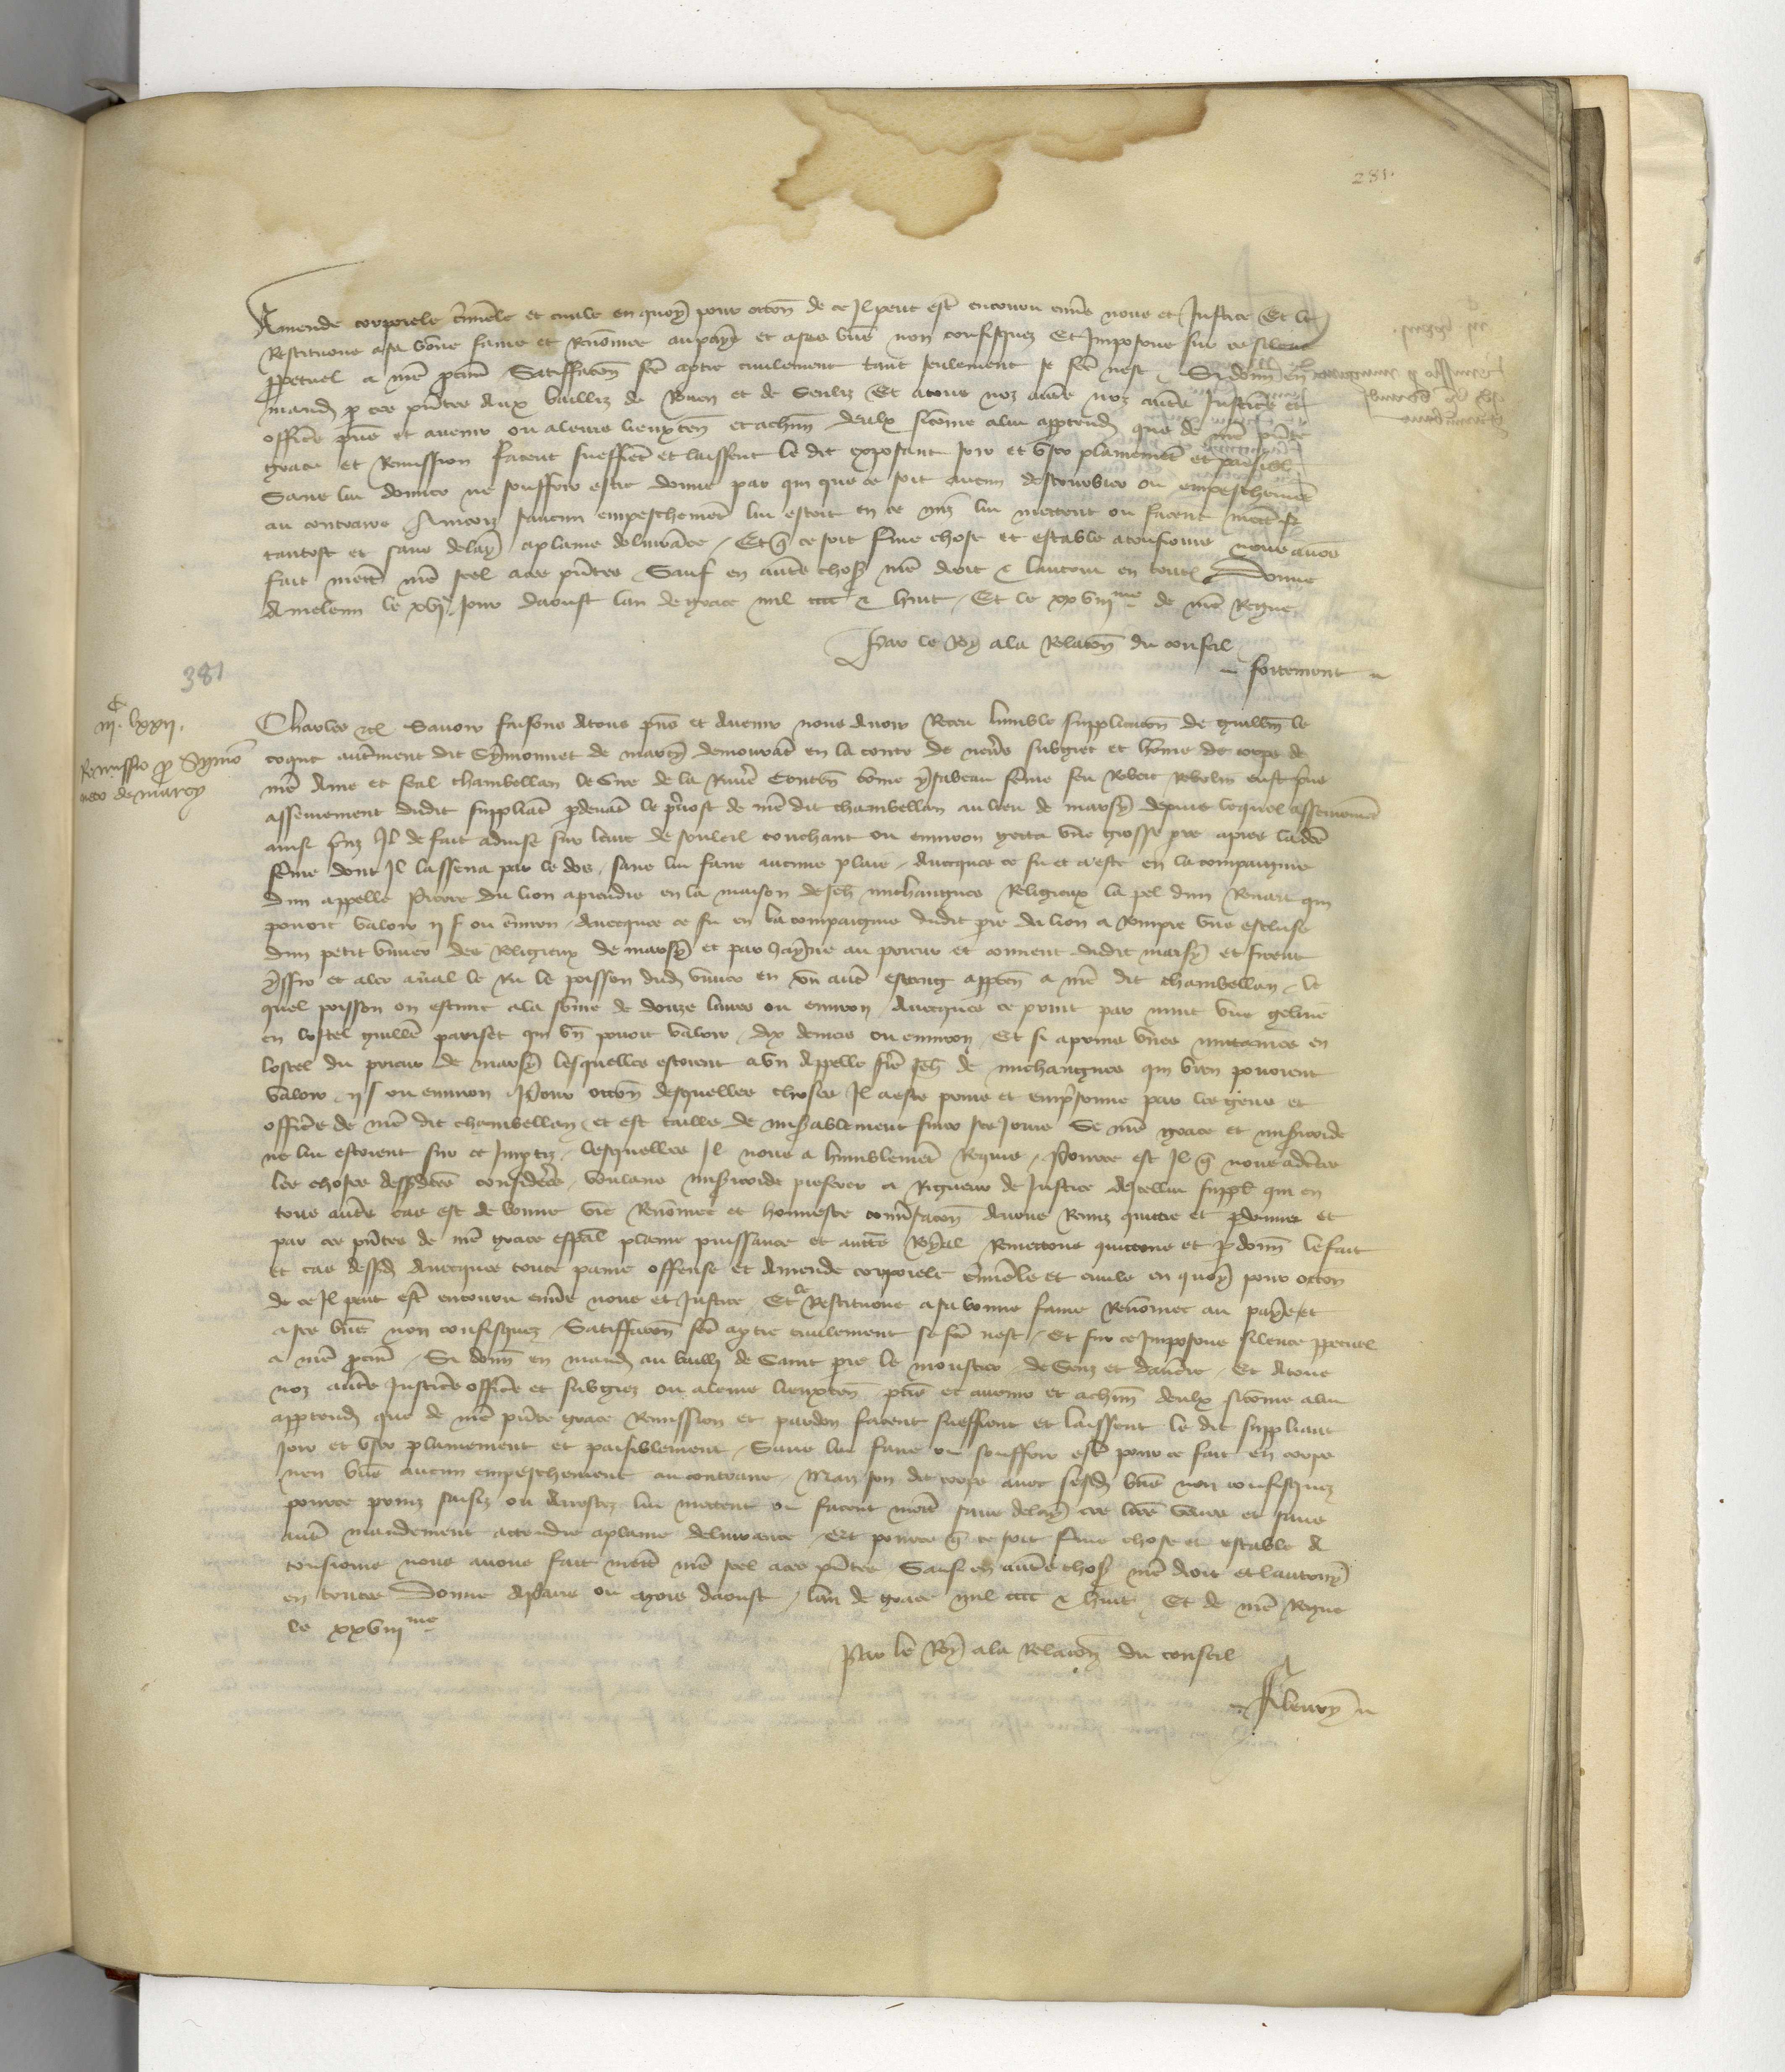 281.
Amende corporele crimele et civile en quoy pour occon de ce Il peut estre encouru envs nous et Justice Et le
Restituons a sa bone fame et Renomee au pays et a ses biens non confisquez Et Imposons sur ce silence
ppetuel a nre pcur Satiffacon fce aptie civilement tant seulement se fce nest Si donn en
mand p ces pntes Aux bailliz de Rouen et de Senliz Et a tous noz autres noz autres Justiciers et
officrs pns et avenir ou a leurs lieuxten et a chun deulx si come a lui appartendra que de nre pnte
grace et Remission facent sueffret et laissent le dit exposant Joir et user plainement et paisibl
Sans lui donner ne souffrir estre donne par qui que ce soit aucun destourbier ou empeschement
au contraire Aincois saucun empeschement lui estoit en ce mis lui mettent ou facent mettre
tantost et sans delay a plaine delivrance Et q ce soit ferme chose et estable a tousjours nous avons
fait mettre nre seel a ces pntes Sauf en autres choses nre droit & lautrui en toutes Donne
A meleun le xvje Jour Daoust lan de grace mil cccc & huit Et le xxviijme de nre Regne
Par le Roy a la Relacon du conseil
fortement
381
iijc lxxij.
Remissio p Symo
neto de marcy
Charles etc Savoir faisons A tous pns et Avenir nous Avoir Receu lumble supplicacon de guillm le
coqut autrement dit Symonnet de marcy demourat en la conte de nevrs subgiet et home de corps de
nre Ame et feal chambellan le Sire de la Rivire Contn come ysabeau feme feu Robert Robelin eust prins
asseurement dudit suppliat p devat le pvost de nre dit chambellan au lieu de marsy depuis lequel asseurement
ainsi prins Il de fait advise sur leure de souleil couchant ou environ getta une grosse pre apres ladce
feme dont Il lassena par le dos sans lui faire aucune plaie Avecques ce fu et a este en la compaignie
dun appelle Pierre du lion a prendre en la maison de Jeh michaugues Religieux la pel dun Renart qui
povoit valoir ij s ou environ Avecques ce fu en la compaignie dudit pre du lion a Rompre une escluse
dun petit vivier des Religieux de marsy et par hayne au prieur et couvent dudit marsy et firent
yssir et aler aval le Ru le poisson dud vivier en un autre estang apptn a nre dit chambellan le
quel poisson on estime a la some de douze livres ou environ Avecques ce print par nuit une geline
en lostel guille pariset qui bn povoit valoir dix deniers ou environ Et si a prins unes mitaines en
lostel du prieur de marsy lesquelles estoient a un Appelle fre Jeh de michaugues qui bien povoient
valoir ij s ou environ Pour occon desquelles choses Il a este prins et emprisonne par les gens et
officrs de nre dit chambellan et est taille de misablement finer ses Jours Se nre grace et misicorde
ne lui estoient sur ce Imptiz lesquelles Il nous a humblement Requis Pource est Il q nous adctes
les choses dessusdces considerees voulans misicorde preferer a Rigueur de Justice A Icellui suppl qui en
tous autres cas est de bonne vie Renomee et honneste conversacon Avons Remis quitte et pdonne et
par ces pntes de nre grace espal plaine puissance et aucte Royal Remettons quittons et pdonn le fait
et cas dessusd Avecques toute paine offense et Amende corporele crimele et civile en quoy pour occon
de ce Il peut estre encouru envs nous et Justice Et le Restituons a sa bonne fame Renomee au pays et
a ses biens non confisquez Satiffacon fce a ptie civilement se fce nest Et sur ce Imposons silence ppetuel
a nre pcur Si donn en mand au bailli de Saint pre le moustier de Sens et dauxrre Et A tous
noz autres Justicrs officrs et subgiez ou a leurs lieuxten pns et avenir et a chun deulx si come a lui
appartendra que de nre pnte grace Remission et pardon facent sueffrent et laissent le dit suppliant
Joir et user plainement et paisiblement Sans lui faire ou souffrir estre pour ce fait en corps
nen biens aucun empeschement au contraire Mais son dit corps avec sesd biens non confisquez
pource prins saisiz ou Arrestez lui mettent ou facent mettre sans delay ces lres veues et sans
autre mandement attendre a plaine delivrance Et pource q ce soit ferme chose et estable A
tousjours nous avons fait mettre nre seel a ces pntes Sauf en autres choses nre droit et lautruy
en toutes Donne A paris ou mois daoust lan de grace mil cccc & huit Et de nre Regne
le xxviijme
Par le Roy a la Relacon du conseil